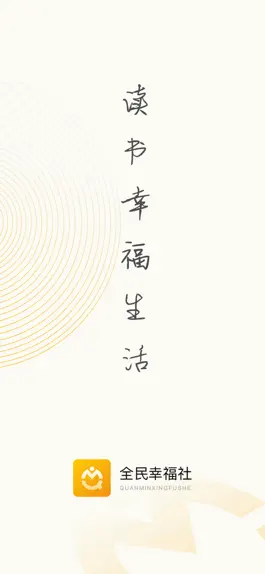 读书幸福生活
全民幸福社
QUANMINXINGFUSHE